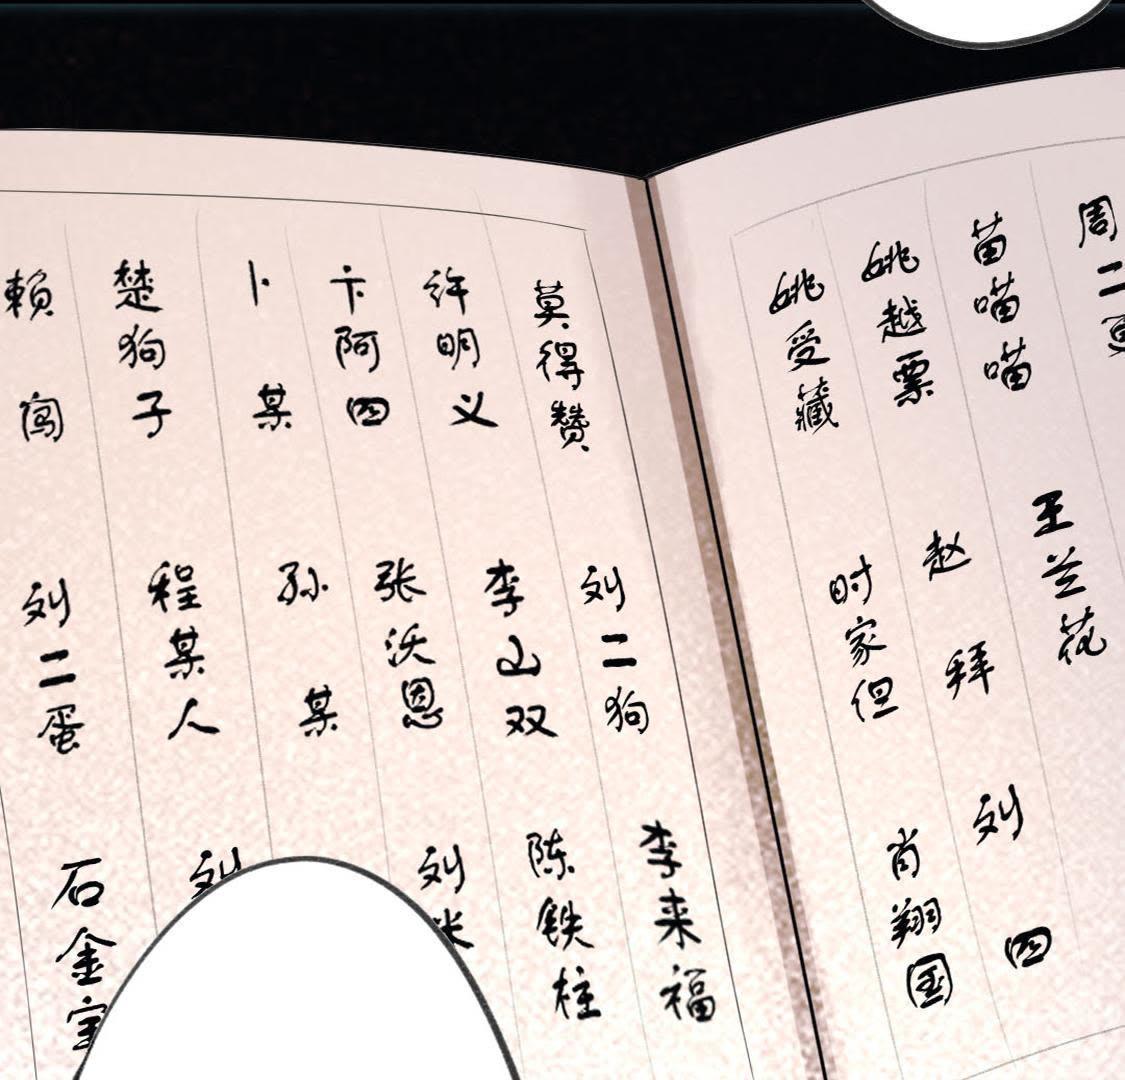 周二
王兰花
苗喵喵
赵拜
刘四
姚越票
时家但
肖翔国
姚受藏
莫得赞
刘二狗
李来福
许明义
李山双
陈铁柱
卞阿四
张沃恩
刘
卜某
孙某
楚狗子
程某人
刘
賴闯
刘二蛋
石金宝